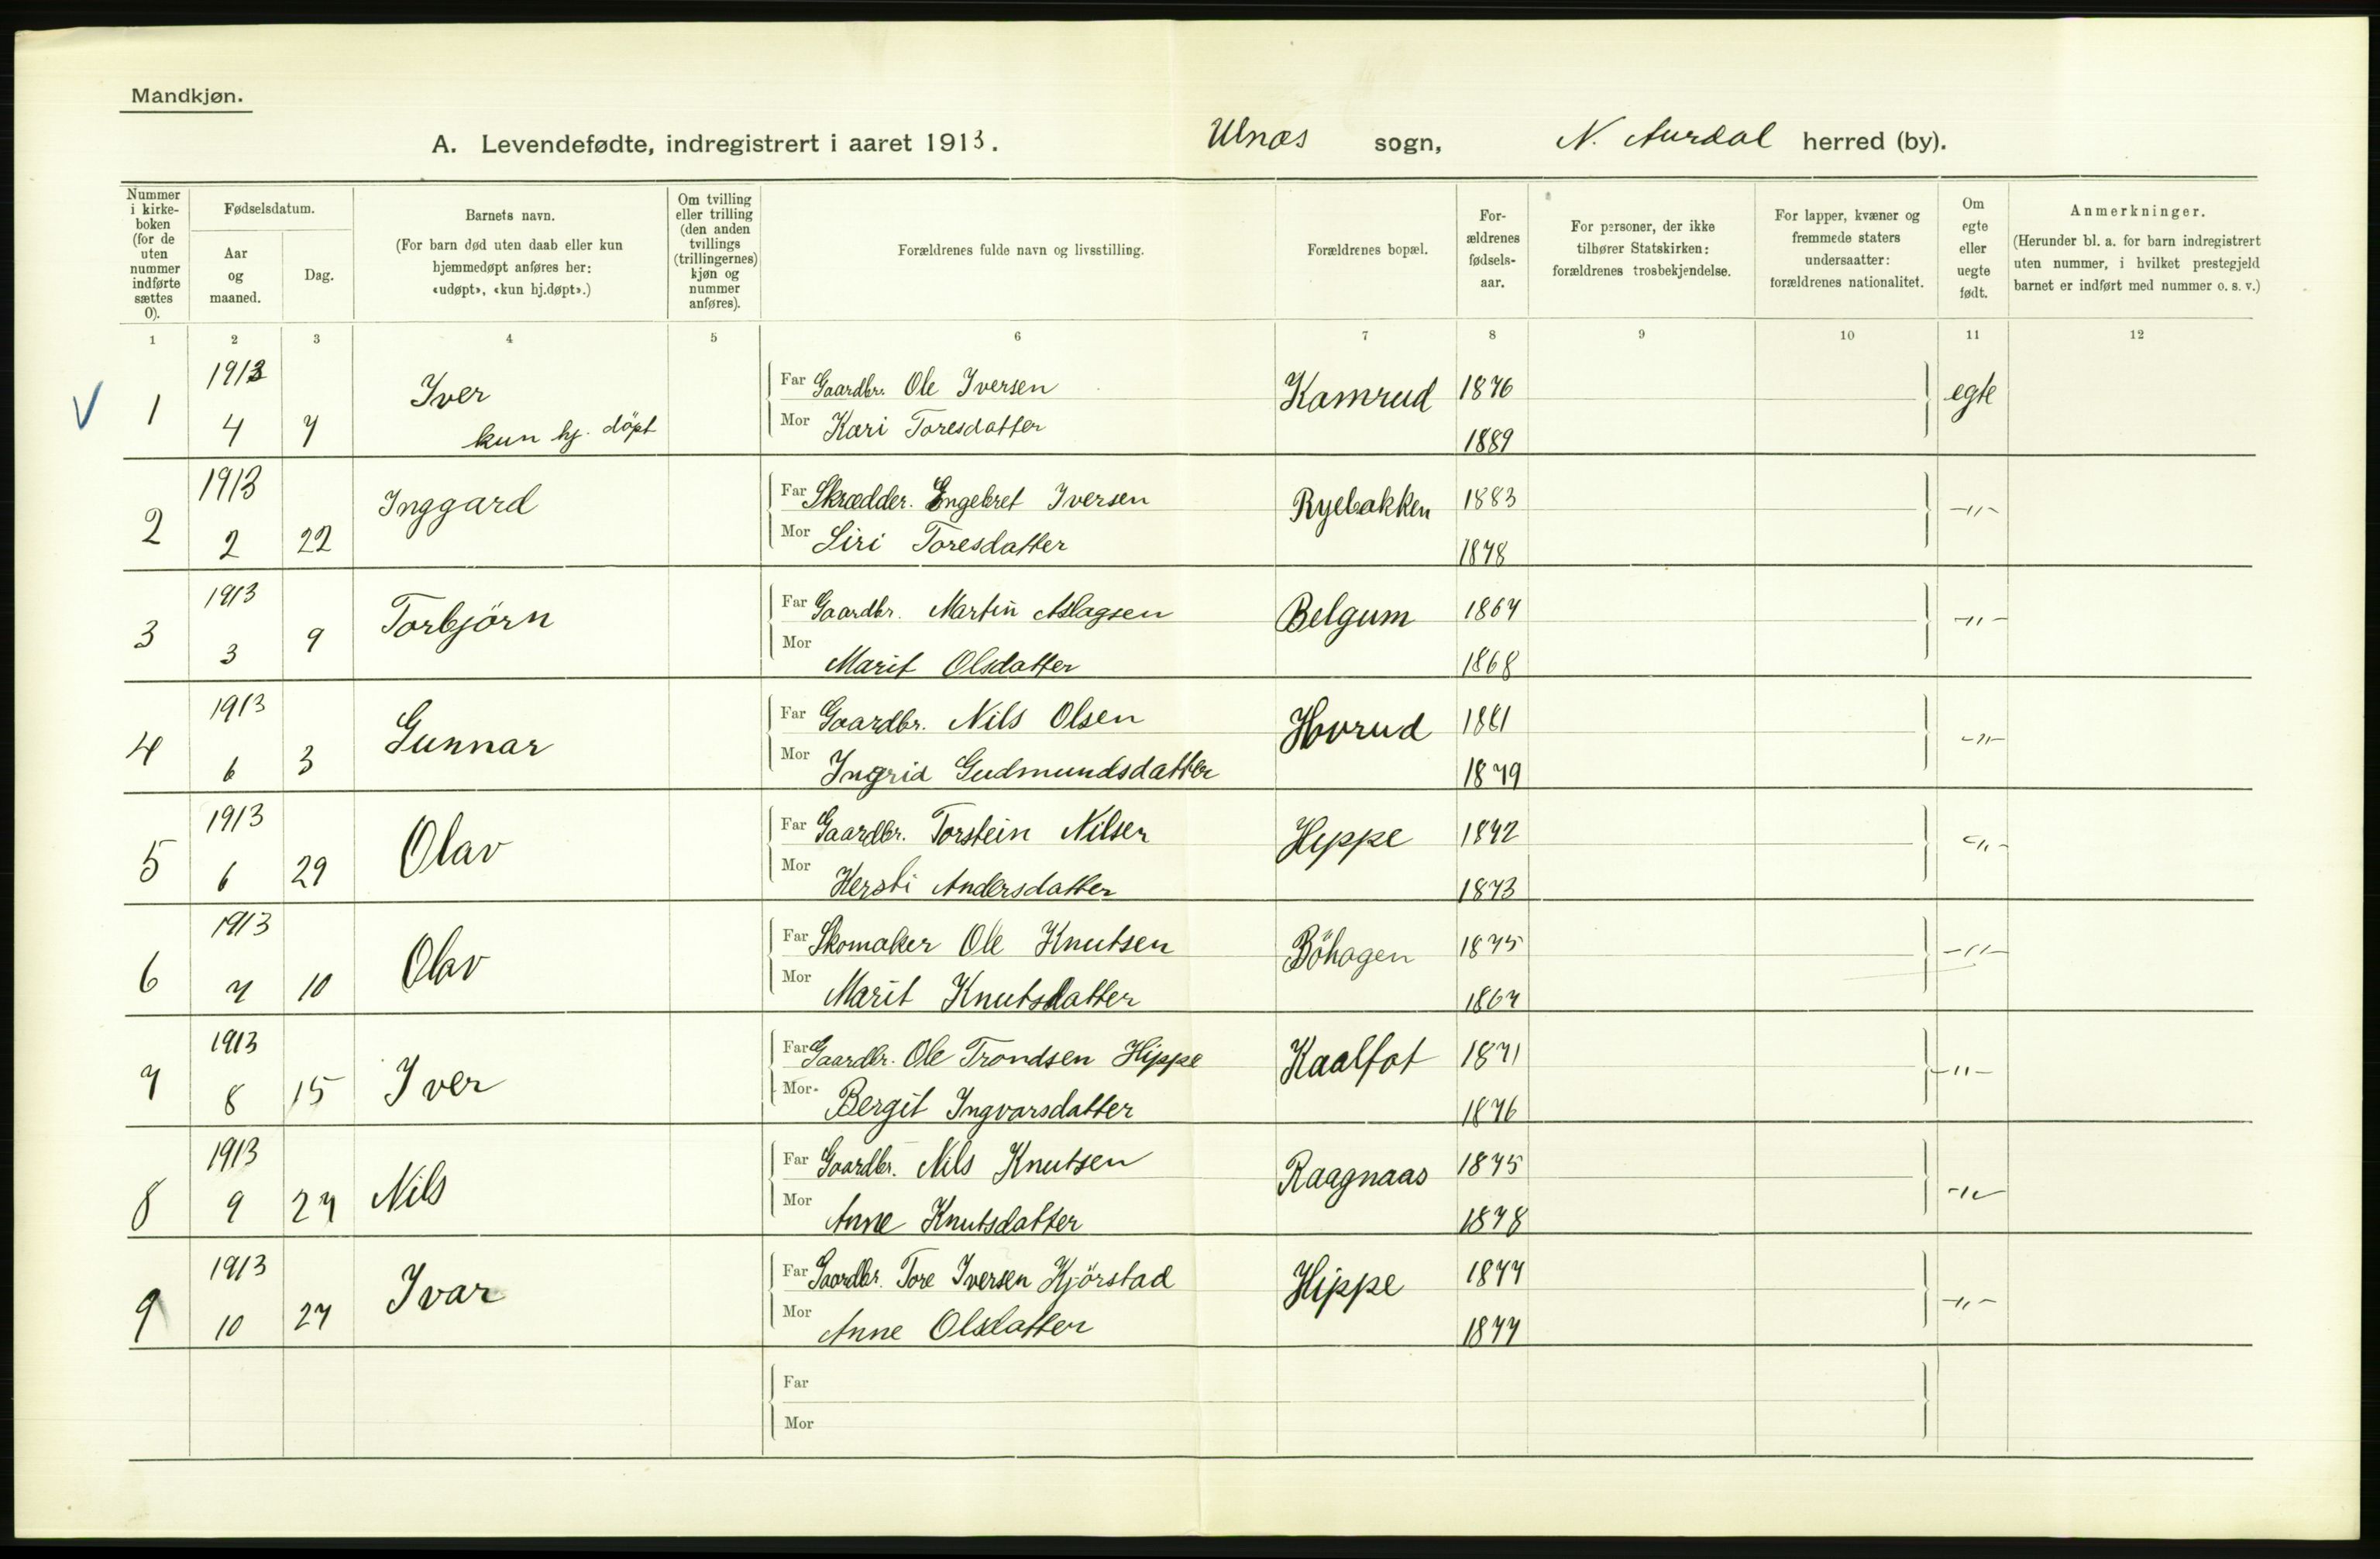 Mandkjøn.
A. Levendefødte, indregistrert i aaret 1913. Ulnæs sogn, N. Aurdal herred (by).
Nummer i kirke-boken (for de uten nummer indførte sættes 0).
Fødselsdatum.
Aar og maaned.
Dag.
Barnets navn.
(For barn død uten daab eller kun hjemmedøpt anføres her: «udøpt», «kun hj.døpt».)
Om tvilling eller trilling (den anden tvillings (trillingernes) kjøn og nummer anføres).
Forældrenes fulde navn og livsstilling.
Forældrenes bopæl.
For-ældrenes fødsels-aar.
For personer, der ikke tilhører Statskirken: forældrenes trosbekjendelse.
For lapper, kvæner og fremmede staters undersaatter: forældrenes nationalitet.
Om egte eller uegte født.
Anmerkninger.
(Herunder bl. a. for barn indregistrert uten nummer, i hvilket prestegjeld barnet er indført med nummer o. s. v.)
1 2 3 4 5 6 7 8 9 10 11 12
V 1 1913 Iver Far Gaardbr. Ole Iversen Kamrud 1876 egte
4 7 kun hj. döpt Mor Kari Toresdatter 1889
2 1913 Inggard Far Skrædder. Engebret Iversen Ryebakken 1883 -"-
2 22 Mor Siri Toresdatter 1878
3 1913 Torbjörn Far Gaardbr. Martin Aslagsen Belgum 1867 -"-
3 9 Mor Marit Olsdatter 1868
4 1913 Gunnar Far Gaardbr. Nils Olsen Hovrud 1881 -"-
6 3 Mor Ingrid Gudmundsdatter 1879
5 1913 Olav Far Gaardbr. Torstein Nilsen Hippe 1872 -"-
6 29 Mor Hersti Andersdatter 1873
6 1913 Olav Far Skomaker Ole Knutsen Böhagen 1875 -"-
7 10 Mor Marit Knutsdatter 1867
7 1913 Iver Far Gaardbr. Ole Trondsen Hippe Kaalfot 1871 -"-
8 15 Mor Bergit Ingvarsdatter 1876
8 1913 Nils Far Gaardbr. Nils Knutsen Raagnaas 1875 -"-
9 27 Mor Anne Knutsdatter 1878
9 1913 Ivar Far Gaardbr. Tore Iversen Kjörstad Hippe 1877 -"-
10 27 Mor Anne Olsdatter 1877
Far
Mor